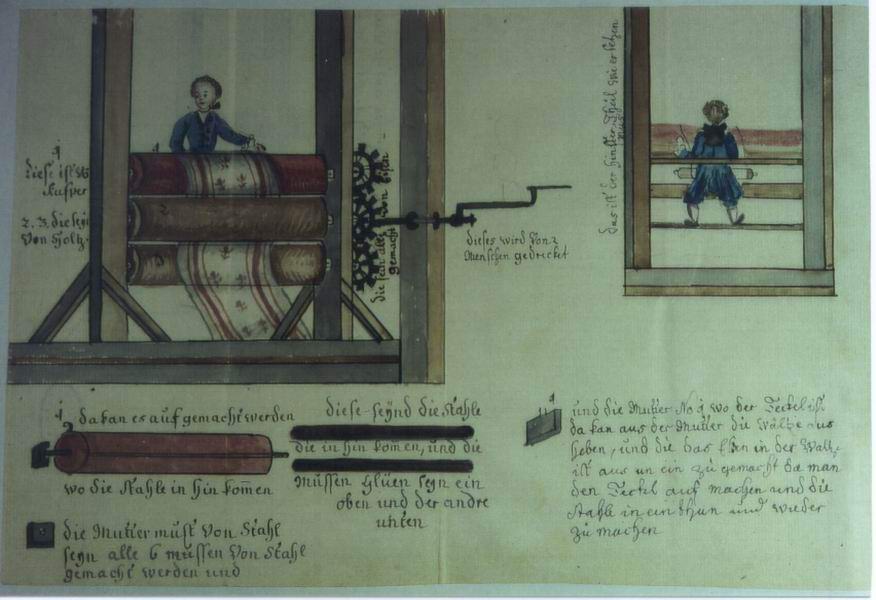 1
diese ist
Kupfer
2. 3. die
Von Holtz
1
2
3
die sein alle von Eisen
gemacht
dieses wird Von 2
Menschen gedricket
das ist der hinster Theil wie er sehen
mus
1 da kan es auf gemacht werden
wo die Stahle in hin komen
diese seynd die Stahle
die in hin komen, und die
müssen Glüen seyn ein
oben und der andre
unten
die Mutter must Von Stahl
seyn alle 6 müssen Von Stahl
gemacht werden und
1
und die Mutter No 1 wo der Deckel ist
da kan aus der Mutter die Waltze aus
heben, und die das Eisen in der Waltz
ist aus un ein zu gemacht da man
den Deckel auf machen und die
Stahle in ein thun und wieder
zu machen